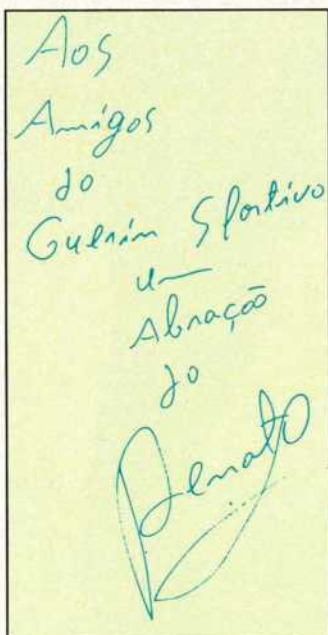 Aos
Amigos
do
Guerin Sportivo
um
Abração
do
Renato